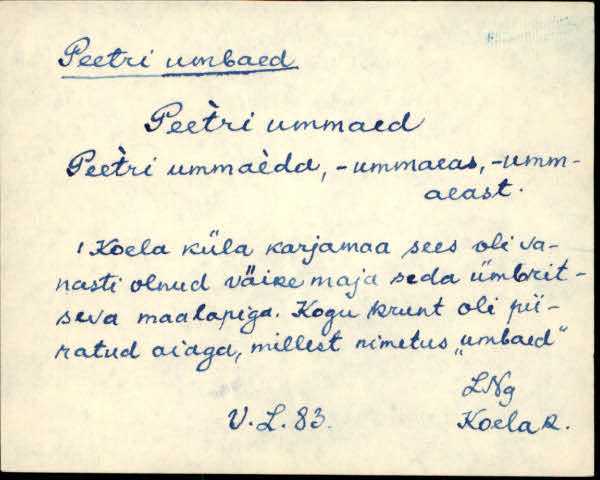 Peetri umbaed
Peètri ummaed
Peètri ummaèda, -ummaeas, -umm-
aeast.
Koela küla karjamaa sees oli va-
nasti olnud väike maja seda ümbrit-
seva maalapiga. Kogu krunt oli pii-
ratud aiaga, millest nimetus „umbaed"
LNg
V. L. 83. Koela k.